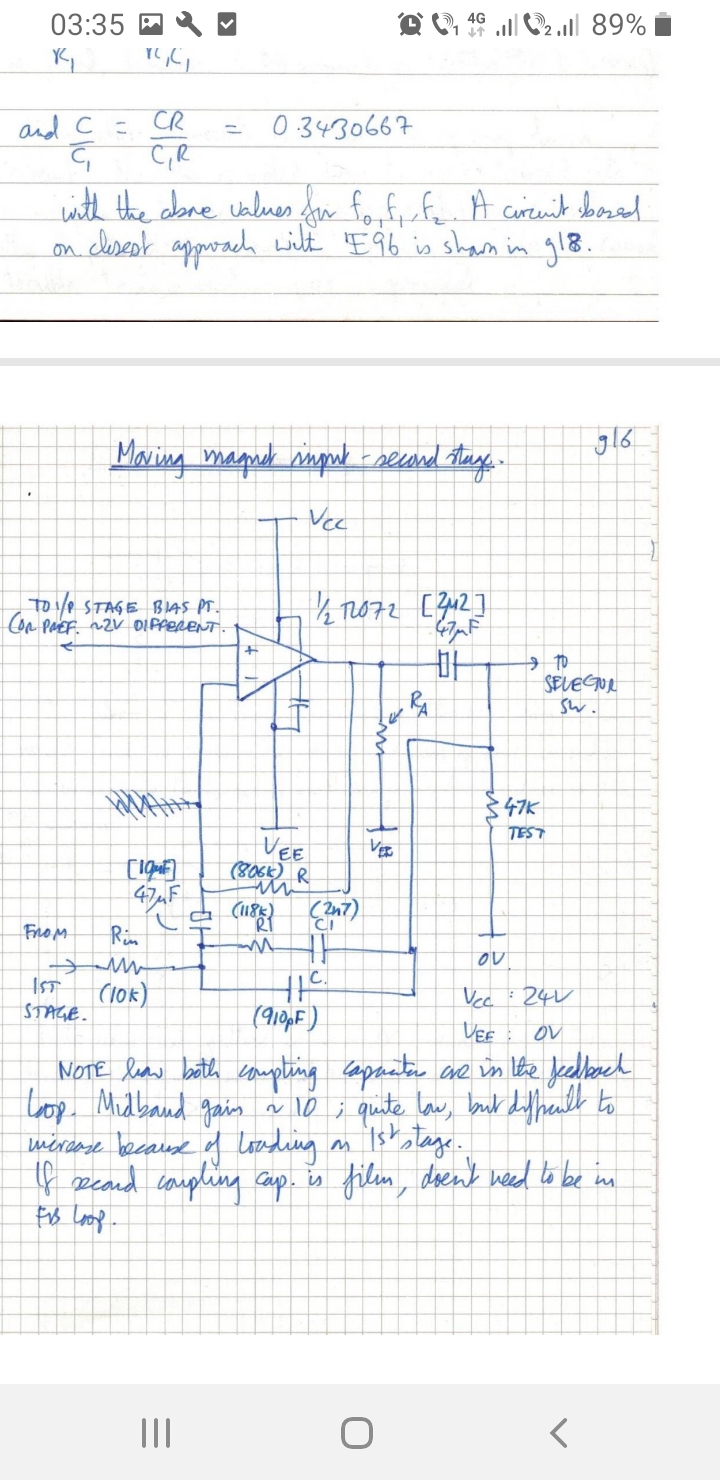 03:35 1 4G 2 89%
R₁ R₁C₁
and C/C₁ = CR/C₁R = 0.3430667
with the above values for f₀, f₁, f₂. A circuit based
on closest approach with E96 is shown in g18.
g16
Moving magnet input - second stage.
VCC
TO I/P STAGE BIAS PT.
(OR PREF. ~2V DIFFERENT.
½ TL072
[2µ2]
47µF
+
-
TO
SELECTOR
SW.
RA
47K
TEST
VEE
VEE
[10µF]
47µF
(806K) R
(118K)
R1
(2n7)
C1
FROM
1ST
STAGE.
Rin
(10K)
C.
(910pF)
0V
VCC : 24V
VEE : 0V
NOTE how both coupling capacitors are in the feedback
loop. Midband gain ~ 10 ; quite low, but difficult to
increase because of loading on 1st stage.
If second coupling cap. is film, doesn't need to be in
FB loop.